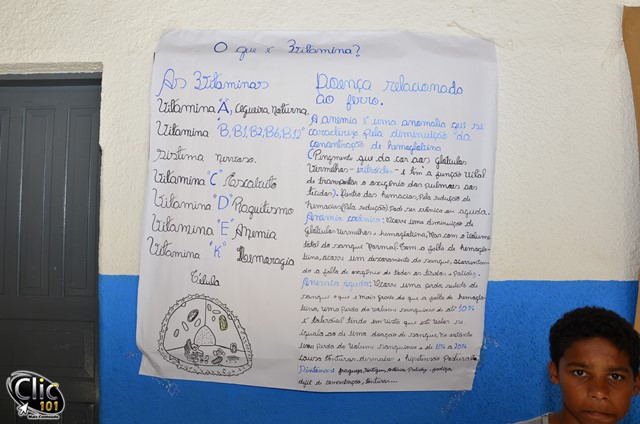 O que é Vitamina?
As Vitaminas
Vitamina "A", Cegueira Noturna,
Vitamina "B, B1, B2, B6, B12"
sistema nervoso.
Vitamina "C" Escorbuto
Vitamina "D" Raquitismo
Vitamina "E" Anemia
Vitamina "K" Hemoragia
Célula
Doença relacionada
ao ferro.
A anemia é uma anomalia que se
caracteriza pela diminuição da
concentração de hemoglobina
(Pingmento que da cor aos glóbulos
Vermelhos - eritrócitos - e tem a função vital
de transportar o oxigênio dos pulmões aos
tecidos). Dentro das hemacias, Pela redução de
hemacias (Pela redução) Pod ser crônica ou aguda.
Anemia crônica: Ocorre uma diminuição de
Glóbulos Vermelhos e hemoglobina, Mas com o Volume
total do sangue Normal. Com a falta de hemoglo-
bina, ocorre um descoramento do sangue,
do a falta de oxigênio de todos os tecidos e Palidez.
Anemia aguda: Ocorre uma perda súbita de
sangue o que é mais grave do que a falta de hemoglo-
bina, uma perda do volume sanguíneo de até 10%
é tolerável tendo em vista que este valor se
iguala ao de uma doação de sangue. No entanto
uma perda de volume sanguíneo e de 11% a 20%
causa tonturas, desmaios e hipotensão
Sintomas: fraqueza,
dificil de concentração, tonturas...
Clic
101